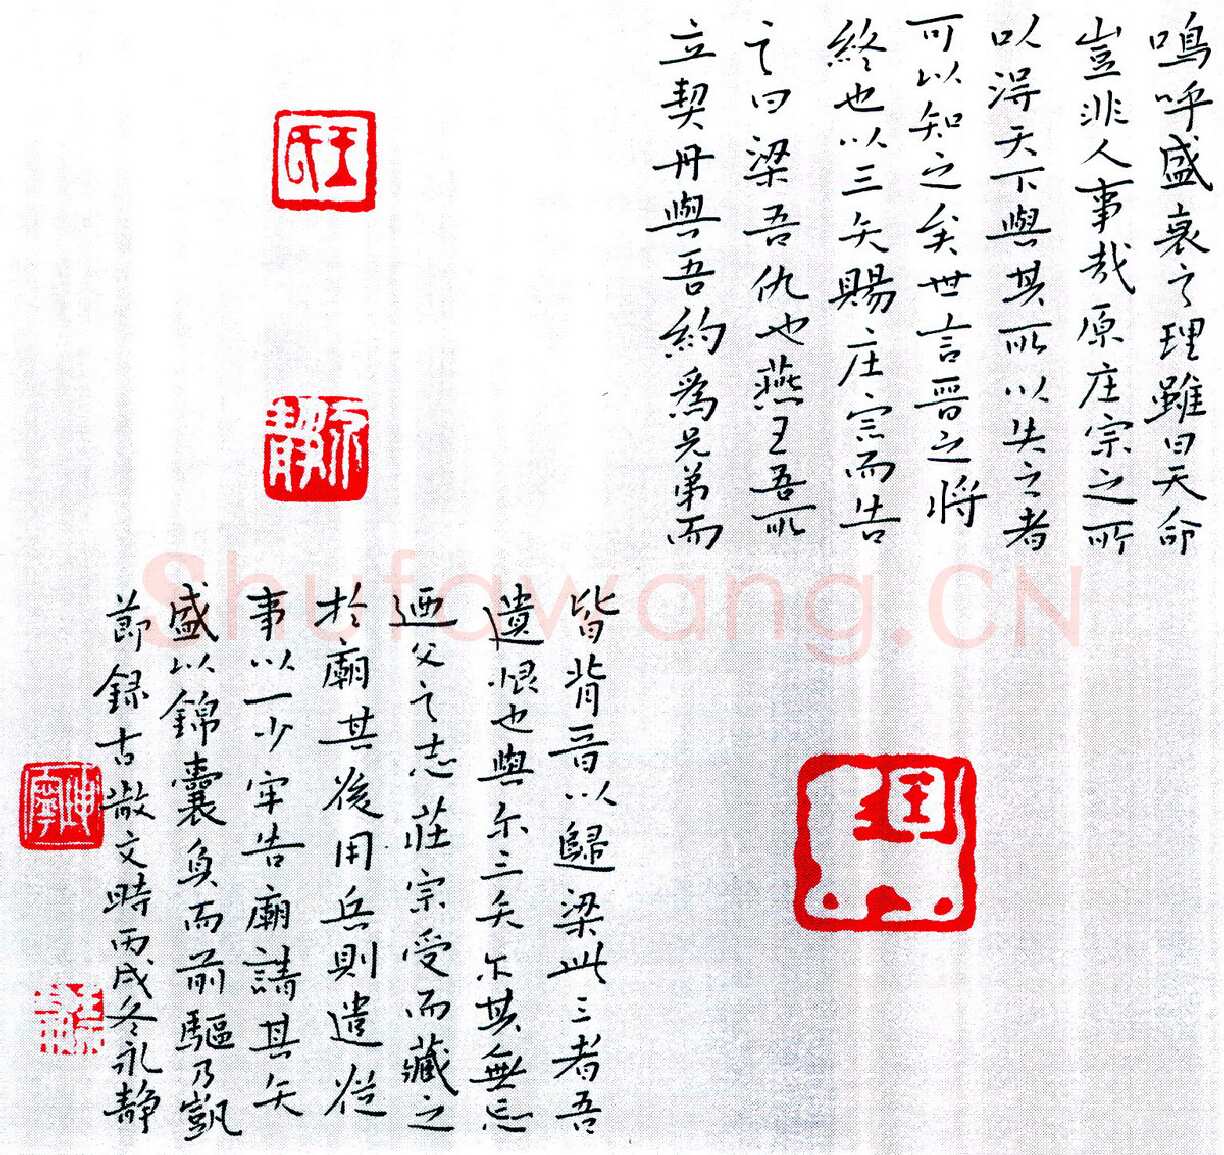 嗚呼盛衰之理雖曰天命
豈非人事哉原庄宗之所
以得天下與其所以失之者
可以知之矣世言晋之将
終也以三矢賜庄宗而告
之曰梁吾仇也燕王吾所
立契丹與吾約為兄弟而
皆背晋以歸梁此三者吾
遺恨也與尔三矢尔其無忘
廼父之志莊宗受而藏之
於廟其後用兵則遣従
事以一少牢告廟請其矢
盛以錦囊負而前驅乃凱
節録古散文時丙戌冬永静
王氏
永静
坤寧
Shufawang.CN